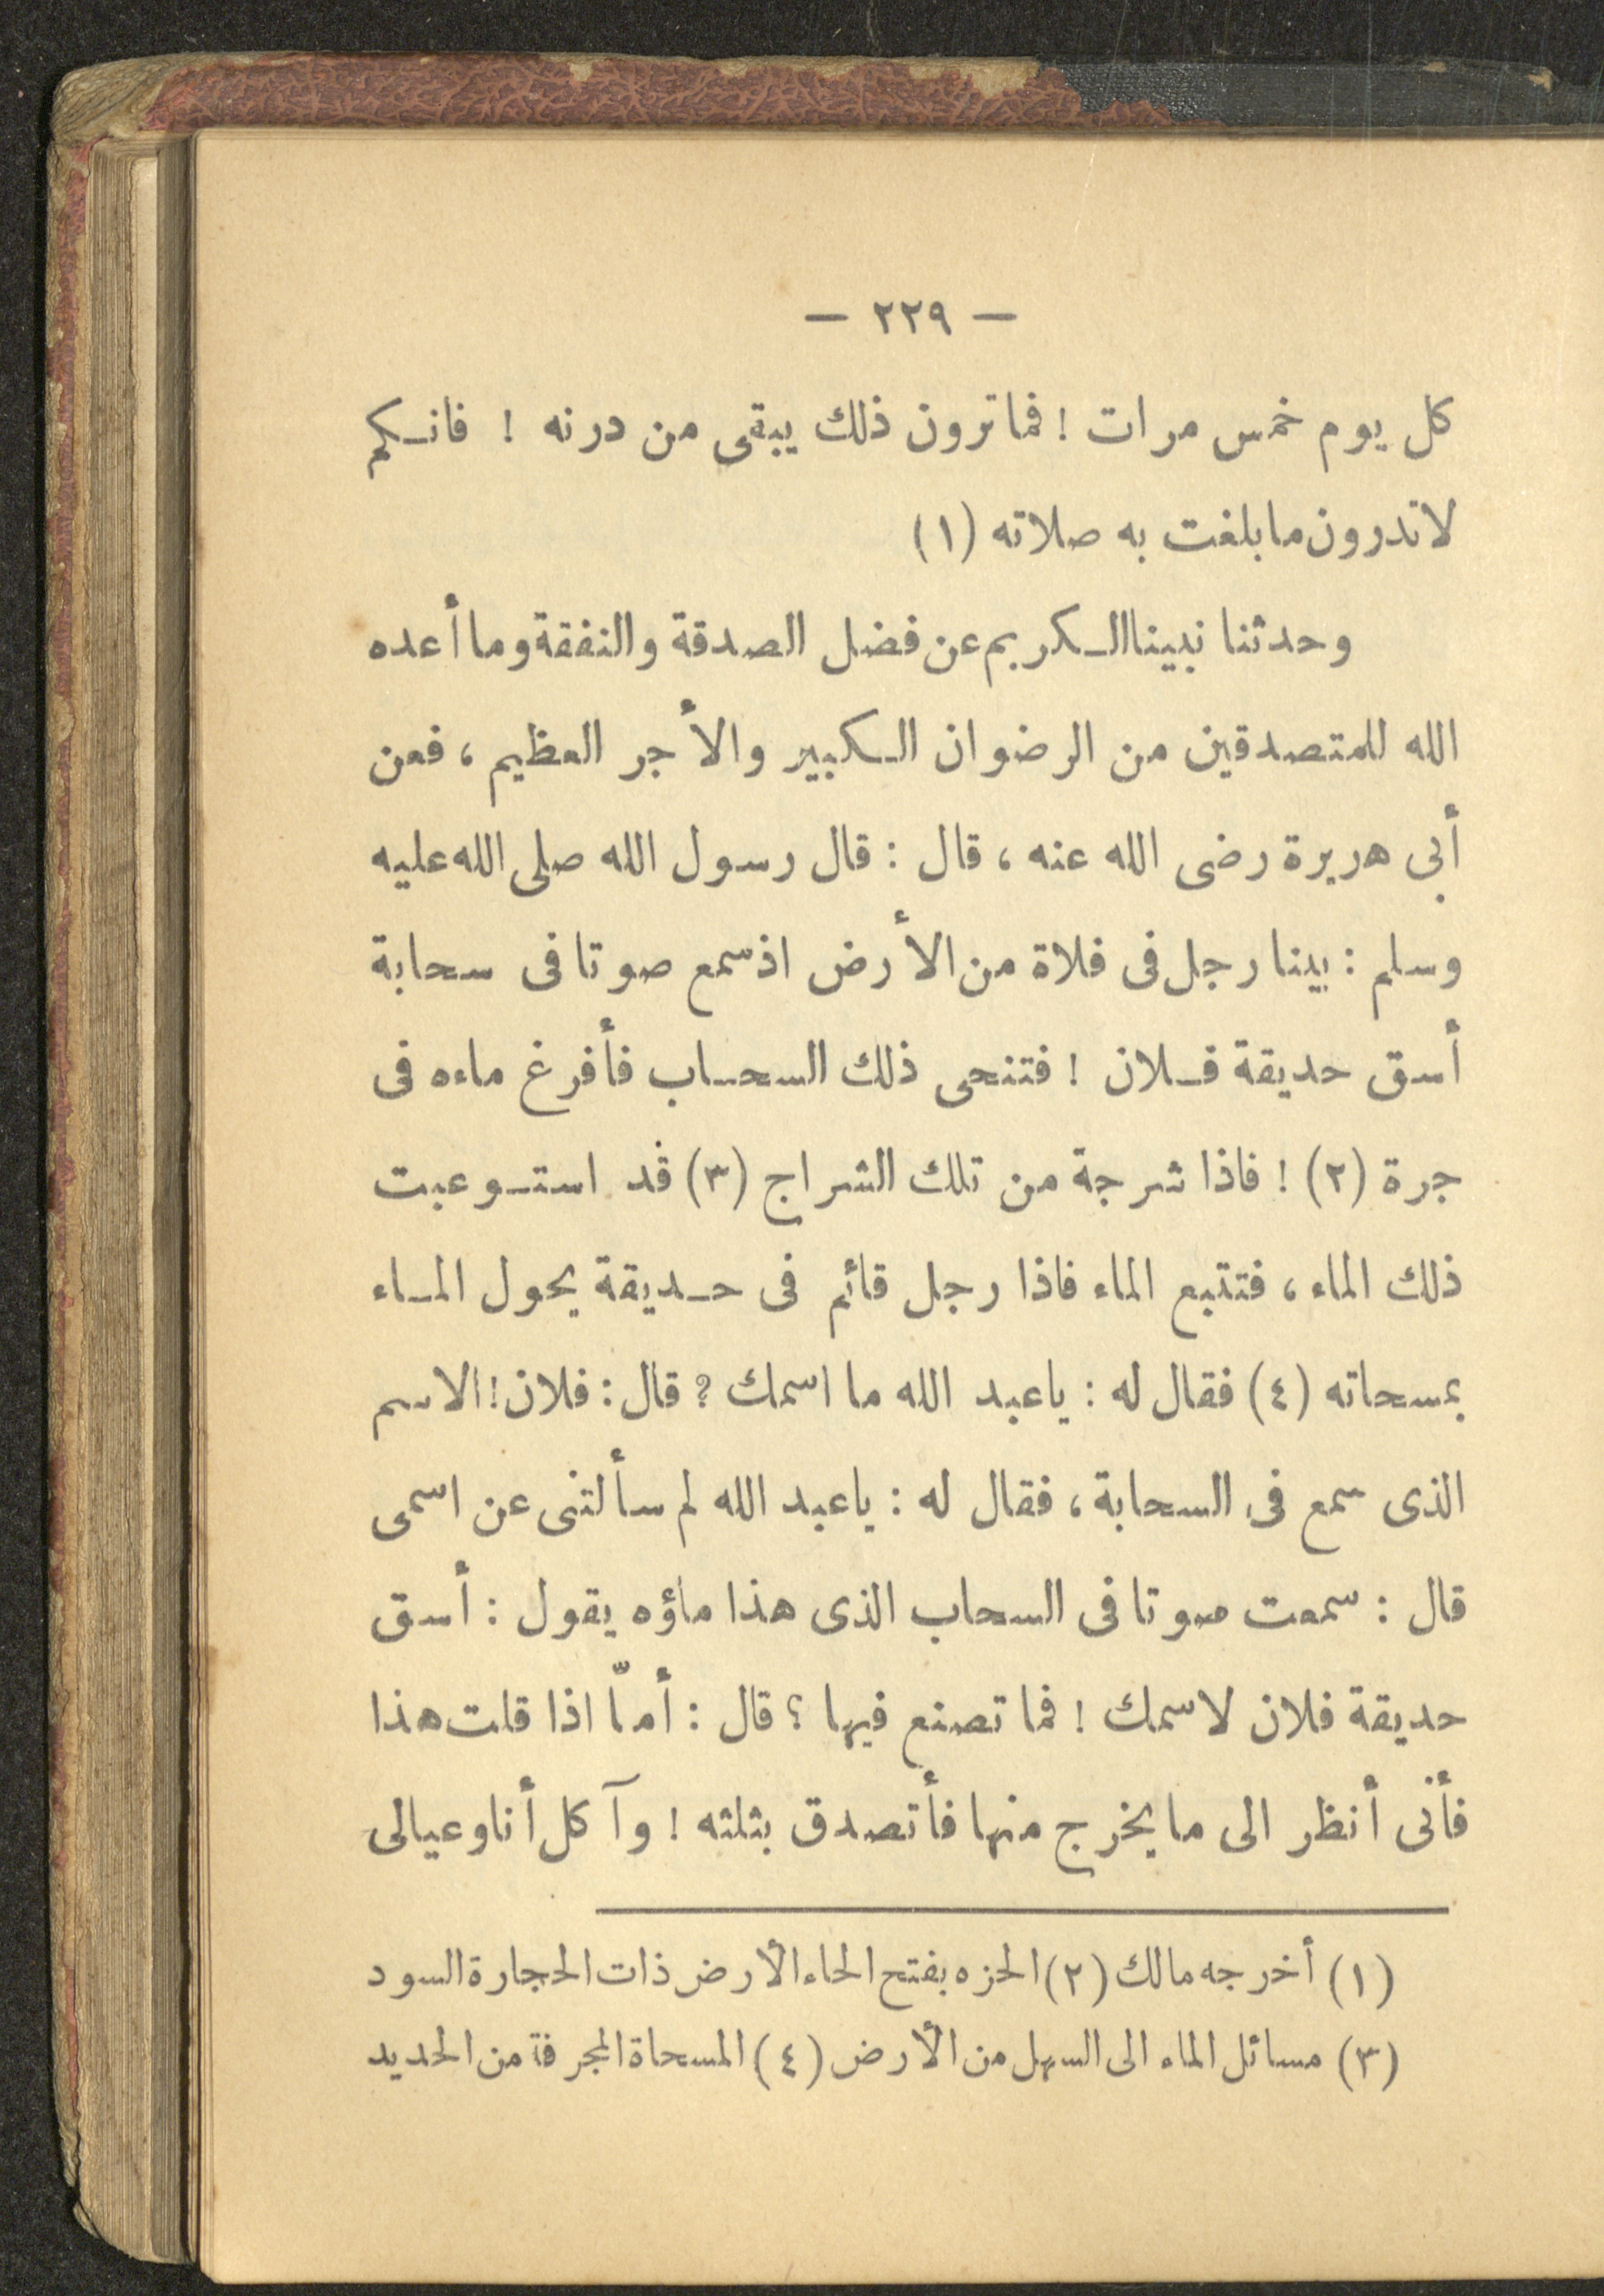 — ٢٢٩ —
كل يوم خمس مرات ! فما ترون ذلك يبقى من درنه ! فانكم
لا تدرون ما بلغت به صلاته (١)
وحدثنا نبينا الكريم عن فضل الصدقة والنفقة وما أعده
الله للمتصدقين من الرضوان الكبير والأجر العظيم ، فعن
أبى هريرة رضى الله عنه ، قال : قال رسول الله صلى الله عليه
وسلم : بينا رجل فى فلاة من الأرض اذ سمع صوتا فى سحابة
أسق حديقة فلان ! فتنحى ذلك السحاب فأفرغ ماءه فى
جرة (٢) ! فاذا شرجة من تلك الشراج (٣) قد استوعبت
ذلك الماء ، فتتبع الماء فاذا رجل قائم فى حديقة يحول الماء
بمسحاته (٤) فقال له : ياعبد الله ما اسمك ? قال : فلان ! الاسم
الذى سمع فى السحابة ، فقال له : ياعبد الله لم سألتنى عن اسمى
قال : سمعت صوتا فى السحاب الذى هذا ماؤه يقول : أسق
حديقة فلان لاسمك ! فما تصنع فيها ؟ قال : أمّا اذا قلت هذا
فأنى أنظر الى ما يخرج منها فأتصدق بثلثه ! وآكل أنا وعيالى
(١) أخرجه مالك (٢) الحزه بفتح الحاء الأرض ذات الحجارة السود
(٣) مسائل الماء الى السهل من الأرض (٤) المسحاة المجرفة من الحديد